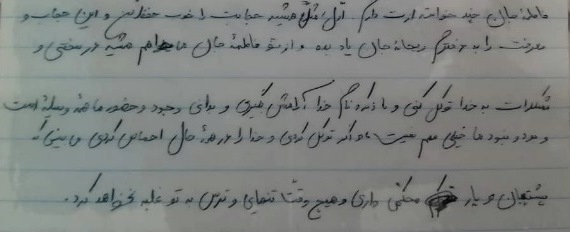 فاطمه جان چند خواسته ازت دارم اول مثل همیشه حجابت را خوب حفظ کن و این حجاب و
معرفت را به دخترم ریحانه جان یاد بده و از تو فاطمه جان می‌خواهم همیشه در سختی و
مشکلات به خدا توکل کنی و با ذکر و نام خدا آرامش بگیری و برای وجود و حضور ما همه وسیله است
و بود و نبود ما خیلی مهم نیست ... اگر توکل کردی و خدا را در همه حال احساس کردی می بینی که
پشتیبان و یار محکمی داری و هیچ وقت تنهایی و ترس به تو غلبه نخواهد کرد.